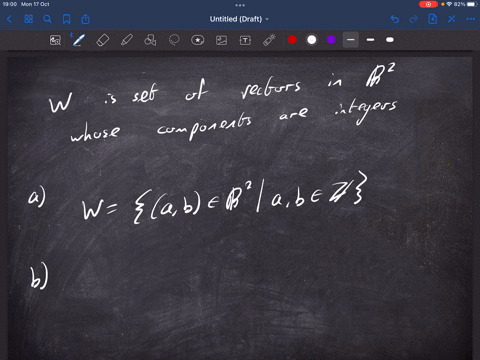 19:00 Mon 17 Oct
82%
Untitled (Draft)
W is set of vectors in ℝ²
whose components are integers
a) W = {(a,b) ∈ ℝ² | a, b ∈ ℤ}
b)